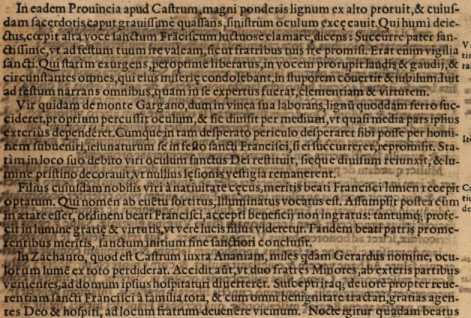 In eadem Prouincia apud Castrum, magni ponderis lignum ex alto proruit, & cuius-
dam sacerdotis caput grauissime quassans, sinistrum oculum excęcauit. Qui humi deie-
ctus, cœpit alta voce sanctum Frāciscum luctuose clamare, dicens: Succurre pater san-
ctissime, vt ad festum tuum ire valeam, sicut fratribus tuis ire promisi. Erat enim vigilia
sancti. Qui statim exurgens, peroptime liberatus, in vocem prorupit laudis & gaudij, &
circunstantes omnes, qui eius miserię condolebant, in stuporem cōuertit & iubilum. Iuit
ad festum narrans omnibus, quam in se expertus fuerat, clementiam & virtutem.
Vir quidam de monte Gargano, dum in vinea sua laborans, lignū quoddam ferro suc-
cideret, proprium percussit oculum, & sic diuisit per medium, vt quasi media pars ipsius
exterius dependeret. Cumque in tam desperato periculo desperaret sibi posse per homi-
nem subueniri, ieiunaturum se in festo sancti Francisci, si ei succurreret, repromisit. Sta
tim in loco suo debito viri oculum sanctus Dei restituit, sicque diuisum reiunxit, & lu-
mine pristino decorauit, vt nullius lęsionis vestigia remanerent.
Filius cuiusdam nobilis viri à natiuitate cęcus, meritis beati Francisci lumen recepit
optatum. Qui nomen ab euētu sortitus, Illuminatus vocatus est. Assumpsit postea cùm
iuxta esset, ordinem beati Francisci, accepti beneficij non ingratus: tantumq; profe-
cit in lumine gratię & virtutis, vt verę lucis filius videretur. Tandem beati patris prome-
rentibus meritis, sanctum initium fine sanctiori conclusit.
In Zachanto, quod est Castrum iuxta Ananiam, miles qdam Gerardus nomine, ocu-
lorum lumē ex toto perdiderat. Accidit aūt, vt duo fratres Minores, ab exteris partibus
venientes, ad domum ipsius hospitaturi diuerterēt. Suscepti itaq; deuote propter reue-
rentiam sancti Francisci à familia tota, & cum omni benignitate tractati, gratias agen
tes Deo & hospiti, ad locum fratrum deuenere vicinum. Nocte igitur quadam beatus